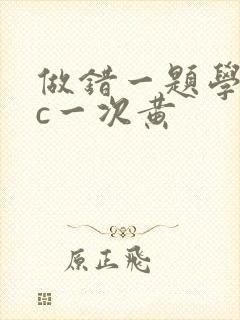 做錯一題學
c一次黃
原正飛